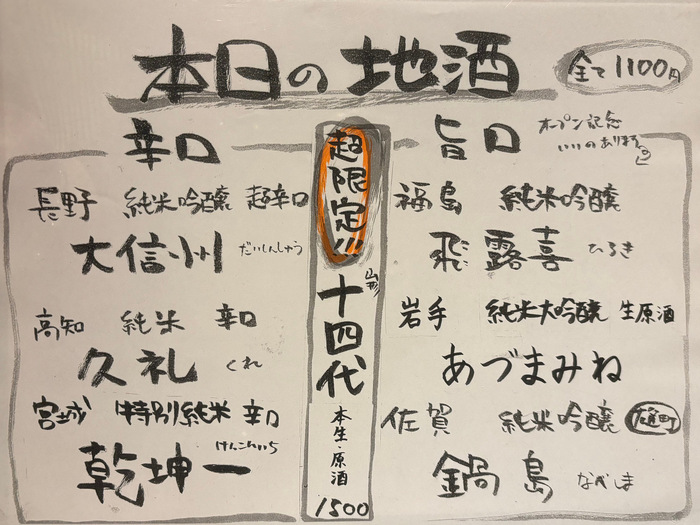 本日の地酒
全て1100円
辛口
長野 純米吟醸 超辛口
大信州 だいしんしゅう
高知 純米 辛口
久礼 くれ
宮城 特別純米 辛口
乾坤一 けんこんいち
超限定!!
山形
十四代
本生・原酒
1500
旨口
オープン記念
いいのあります
福島 純米吟醸
飛露喜 ひろき
岩手 純米大吟醸 生原酒
あづまみね
佐賀 純米吟醸 雄町
鍋島 なべしま